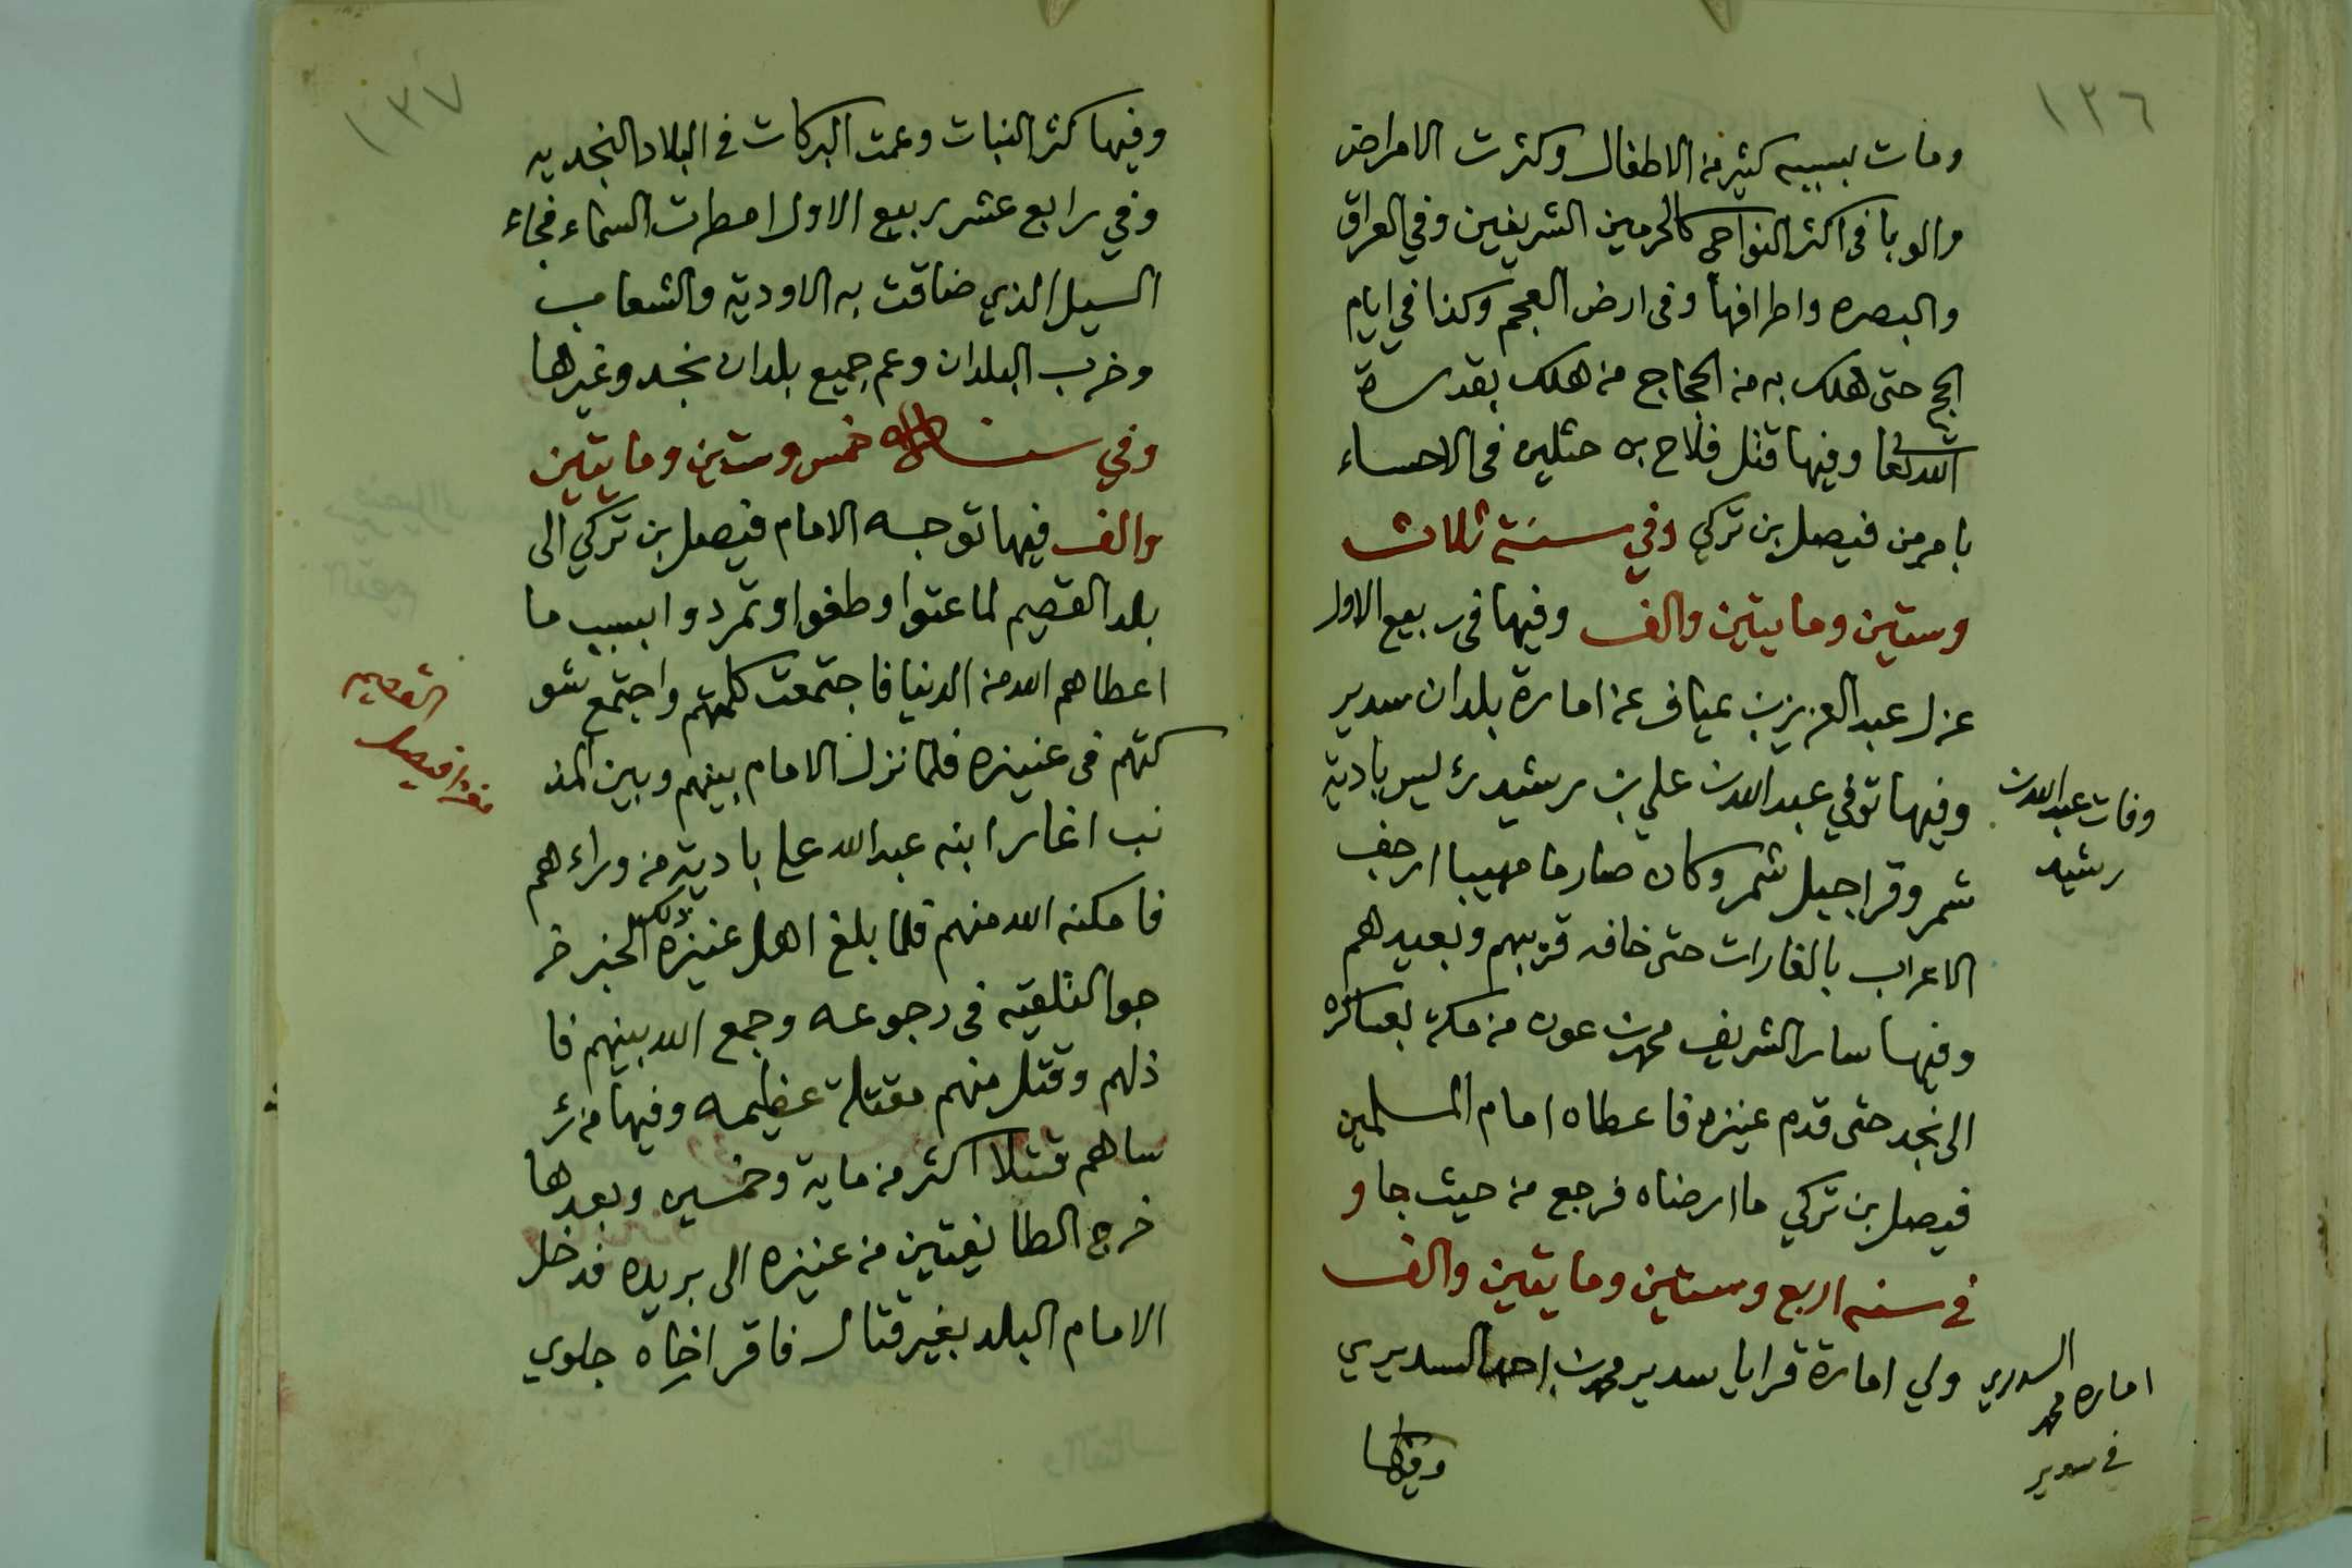 ١٣٦
ومات بسببه كثير من الاطفال وكثرت الامراض
والوبا في اكثر النواحي كالحرمين الشريفين وفي العراق
والبصره واطرافها وفي ارض العجم وكذا في ايام
الحج حتى هلك به من الحجاج من هلك بقدرة
الله تعا وفيها قتل فلاح بن حثلين في الاحساء
بامر من فيصل بن تركي وفي سنة ثلاث
وستين ومايتين والف وفيها في ربيع الاول
عزل عبد العزيز بن عياف عن امارة بلدان سدير
وفيها توفي عبد الله بن علي بن رشيد رئيس بادية
شمر وقرا جبل شمر وكان صارما مهيبا ارجف
الاعراب بالغارات حتى خافه قريبهم وبعيدهم
وفيها سار الشريف محمد بن عون من مكة بعساكره
الى نجد حتى قدم عنيزه فاعطاه امام المسلمين
فيصل بن تركي ما ارضاه فرجع من حيث جا و
في سنه اربع وستين ومايتين والف
ولي امارة قرايا سدير محمد بن احمد السديري
وفيها
وفات عبد الله بن
رشيد
السديري
اماره محمد
في سدير
١٣٧
وفيها كثر النبات وعمت البركات في البلاد النجديه
وفي رابع عشر ربيع الاول امطرت السماء فجاء
السيل الذي ضاقت به الاودية والشعاب
وخرب البلدان وعم جميع بلدان نجد وغيرها
وفي سنه خمس وستين ومايتين
والف فيها توجه الامام فيصل بن تركي الى
بلد القصيم لما عتوا وطغوا وتمردوا بسبب ما
اعطاهم الله من الدنيا فاجتمعت كلمتهم واجتمع شو
كتهم في عنيزه فلما نزل الامام بينهم وبين المذ
نب اغار ابنه عبد الله على بادية من وراءهم
فامكنه الله منهم فلما بلغ اهل عنيزه ذلك الخبر خر
جوا لتلقيه في رجوعه وجمع الله بينهم فا
ذلهم وقتل منهم مقتلة عظيمه وفيها من رؤ
ساهم قتلا اكثر من ماية وخمسين وبعدها
خرج الطائفتين من عنيزه الى بريده فدخل
الامام البلد بغير قتال فاقر اخاه جلوي
القصيم
فيصل